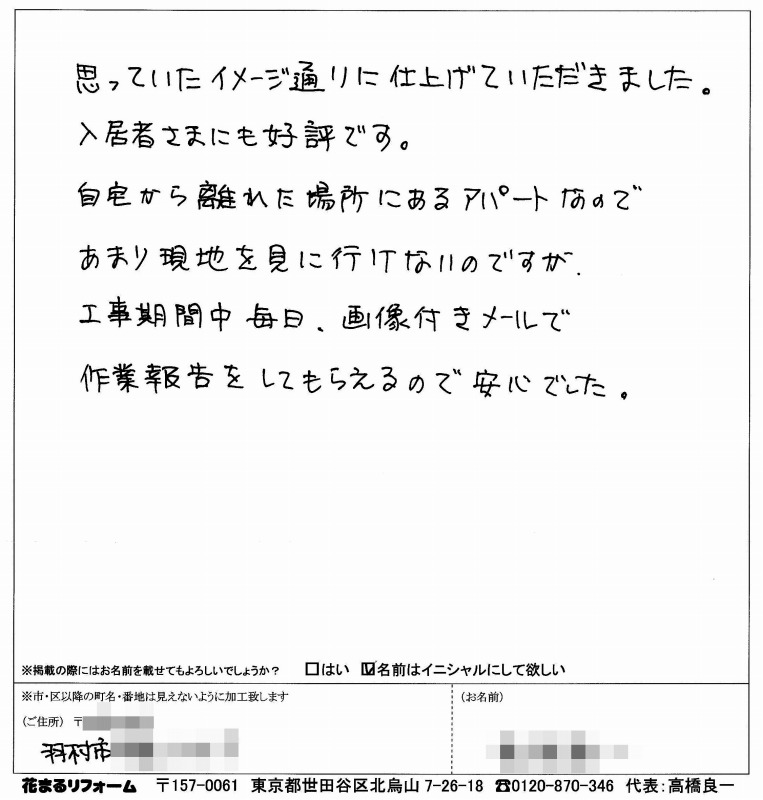 思っていたイメージ通りに仕上げていただきました。
入居者さまにも好評です。
自宅から離れた場所にあるアパートなので
あまり現地を見に行けないのですが、
工事期間中毎日、画像付きメールで
作業報告をしてもらえるので安心でした。
※掲載の際にはお名前を載せてもよろしいでしょうか? □はい ☑名前はイニシャルにして欲しい
※市・区以降の町名・番地は見えないように加工致します
(お名前)
(ご住所) 〒
羽村市
花まるリフォーム 〒157-0061 東京都世田谷区北烏山 7-26-18 ☎0120-870-346 代表:高橋良一